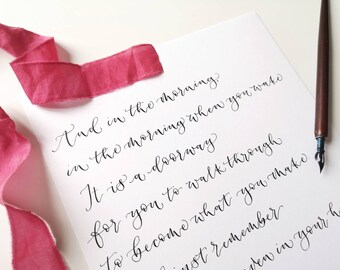 And in the morning,
in the morning when you wake
It is a doorway
for you to walk through
to become what you make
just remember
in your h